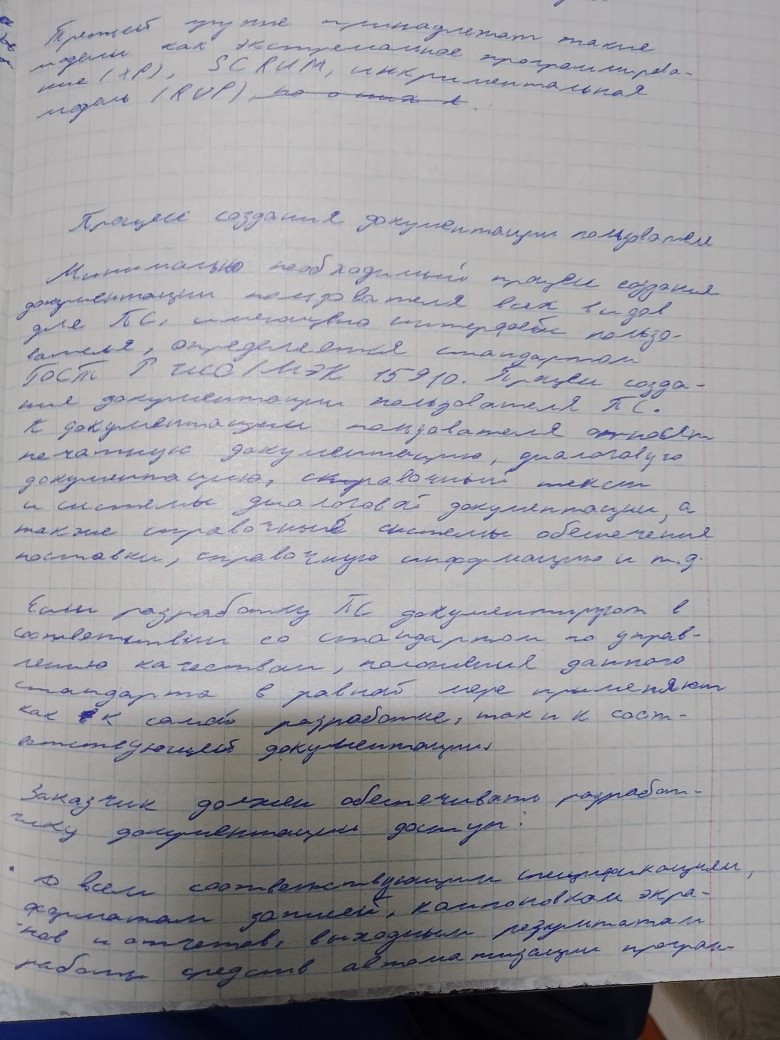 Третьей группе принадлежат такие
модели как экстремальное программирова-
ние (XP), SCRUM, инкриментальная
модель (RUP),
Процесс создания документации пользователя
Минимально необходимый процесс создания
документации пользователя всех видов
для ПС, имеющего интерфейс пользо-
вателя, определяется стандартом
ГОСТ Р ИСО/МЭК 15910. Процесс созда-
ния документации пользователя ПС.
К документации пользователя относят
печатную документацию, диалоговую
документацию, справочный текст
и системы диалоговой документации, а
также справочные системы обеспечения
поставки, справочную информацию и т.д.
Если разработку ПС документируют в
соответствии со стандартом по управ-
лению качеством, положения данного
стандарта в равной мере применяют
как к самой разработке, так и к соот-
ветствующей документации.
Заказчик должен обеспечивать разработ-
чику документации доступ:
• Ко всем соответствующим спецификациям,
форматам записей, компоновкам экра-
нов и отчетов, выходным результатам
работы средств автоматизации програм-